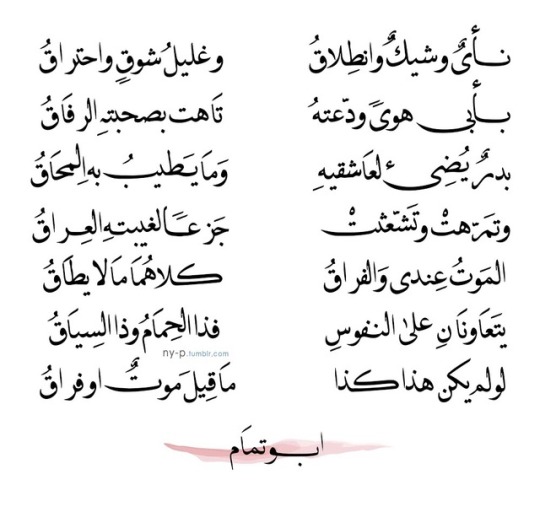 نَأْىٌ وشيكٌ وانطِلاقُ وغليلُ شوقٍ واحتراقُ
بأَبى هوىً ودّعتهُ تاهت بصحبتهِ الرفَاقُ
بدرٌ يُضِىء لعَاشقيهِ وَمَا يَطيبُ بهِ المحَاقُ
وتمَرّهتْ وتَشعّثتْ جَزعاً لغيبتهِ العِراقُ
الموَتُ عِندى وَالفراقُ كلاهُمَا مَالا يطَاقُ
يتَعَاونَانِ علىٰ النفوسِ فذا الحِمَامُ وذا السِيَاقُ
ny-p.tumblr.com
لو لم يكن هذا كذا مَا قِيلَ موتٌ او فراقُ
ابو تمَام